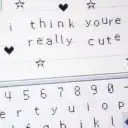 i think youre
really cute
4 5 6 7 8 9 0
e r t y u i o p
g h j k l